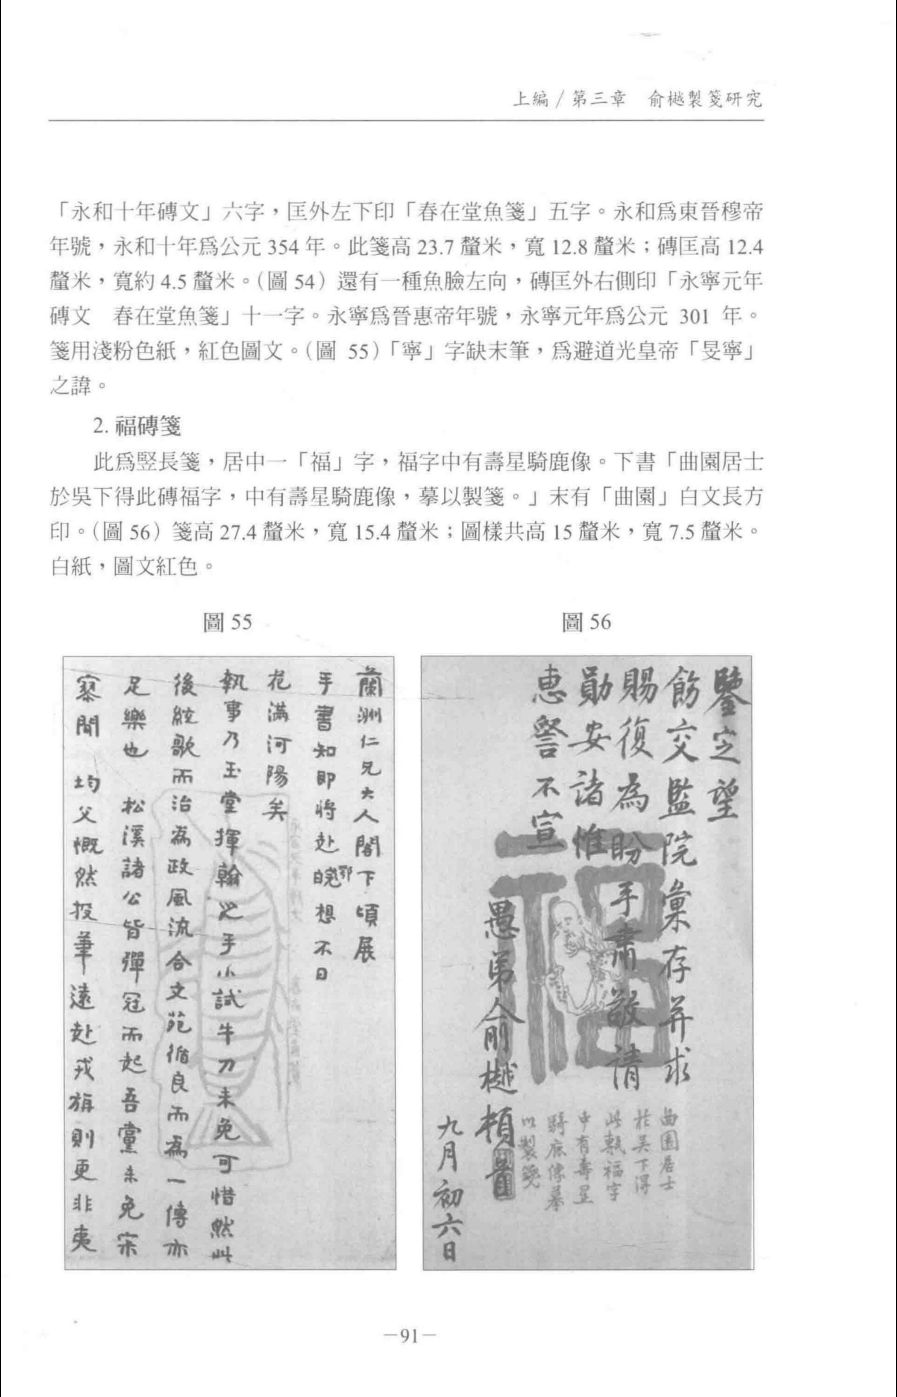 上編／第三章　俞樾製箋研究
「永和十年磚文」六字，匡外左下印「春在堂魚箋」五字。永和爲東晉穆帝
年號，永和十年爲公元 354 年。此箋高 23.7 釐米，寬 12.8 釐米；磚匡高 12.4
釐米，寬約 4.5 釐米。（圖 54）還有一種魚臉左向，磚匡外右側印「永寧元年
磚文　春在堂魚箋」十一字。永寧爲晉惠帝年號，永寧元年爲公元 301 年。
箋用淺粉色紙，紅色圖文。（圖 55）「寧」字缺末筆，爲避道光皇帝「旻寧」
之諱。
2. 福磚箋
此爲竪長箋，居中一「福」字，福字中有壽星騎鹿像。下書「曲園居士
於吳下得此磚福字，中有壽星騎鹿像，摹以製箋。」末有「曲園」白文長方
印。（圖 56）箋高 27.4 釐米，寬 15.4 釐米；圖樣共高 15 釐米，寬 7.5 釐米。
白紙，圖文紅色。
圖 55
蘭洲仁兄大人閣下頃展
手書知即將赴鄂想不日
花滿河陽矣
執事乃玉堂揮翰之手小試牛刀未免可惜然此
後絃歌而治為政風流合文苑循良而為一傳亦
足樂也　松溪諸公皆彈冠而起吾黨未免寂
寥聞　均父慨然投筆遠赴戎旃則更非夷
圖 56
鑒定望
飭交監院彙存并求
賜復為盼手肅敬請
勛安諸惟
惠詧不宣
愚弟俞樾頓首
九月初六日
福
曲園居士
於吳下得
此磚福字
中有壽星
騎鹿像摹
以製箋
—91—